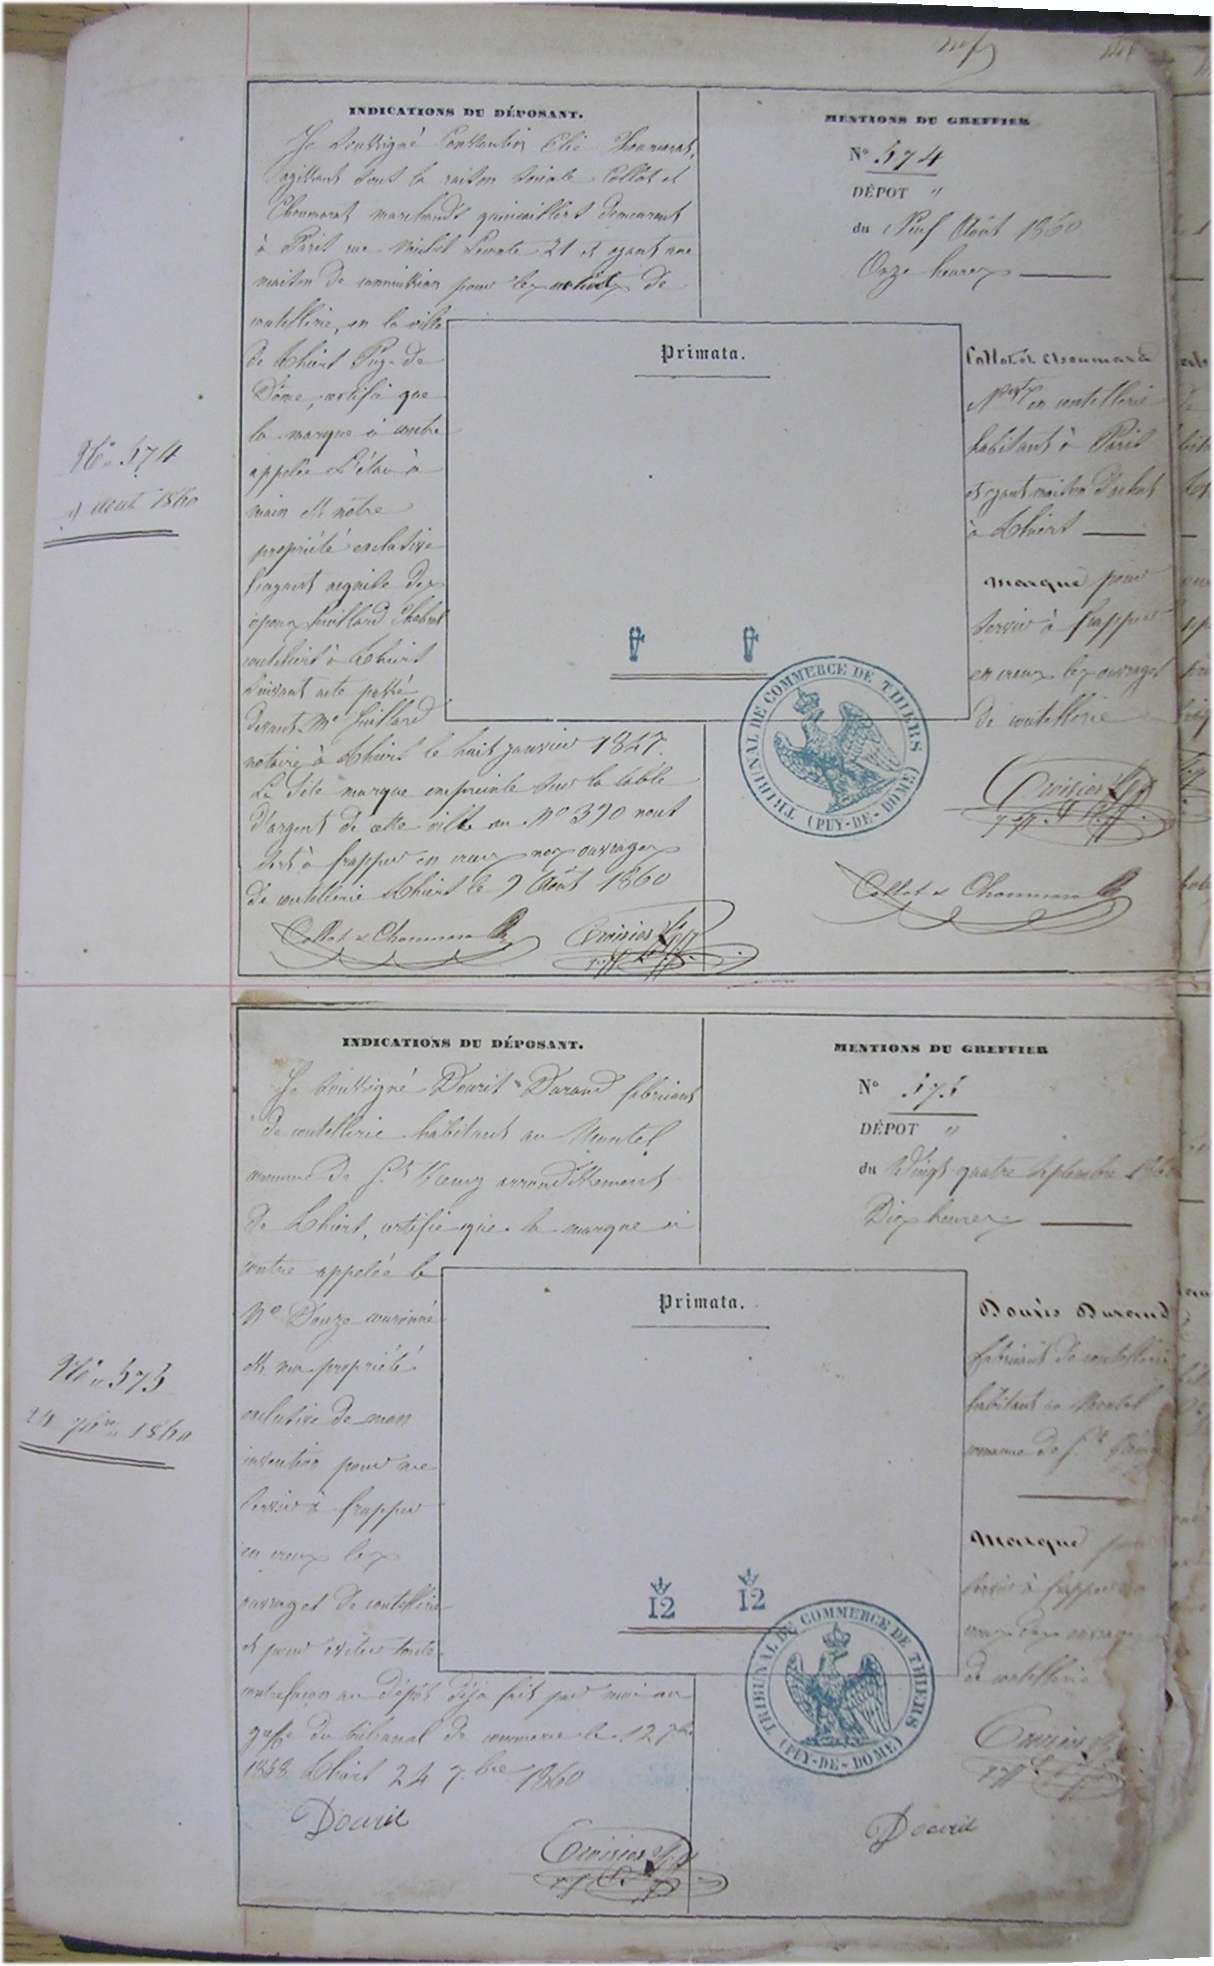 INDICATIONS DU DÉPOSANT.
Je soussigné Constantin Elie Choumarat,
agissant sous la raison sociale Collot et
Choumarat marchands quincailliers demeurant
à Paris rue Michel Lecomte 21 et ayant une
maison de commission pour les achats de
coutellerie, en la ville
de Thiers Puy-de-
Dôme, certifie que
la marque ci contre
appelée L'étau à
main est notre
propriété exclusive
l'ayant acquise des
époux Chabrol
couteliers à Thiers
suivant acte passé
devant Me
notaire à Thiers le huit janvier 1847.
La dite marque empreinte sur la table
d'argent de cette ville au No 390 nous
sert à frapper en creux nos ouvrages
de coutellerie Thiers le 9 Août 1860
Collot et Choumara
MENTIONS DU GREFFIER
No 574
DÉPOT "
du Neuf Août 1860
Onze heures
Primata.
Collot et Choumara
Nts en coutellerie
habitant à Paris
et ayant maison d'achat
à Thiers
Marque pour
servir à frapper
en creux les ouvrages
de coutellerie
TRIBUNAL DE COMMERCE DE THIERS
(PUY-DE-DOME)
Croisier
Collot et Choumara
No 574
9 août 1860
INDICATIONS DU DÉPOSANT.
Je soussigné Douris Durand fabricant
de coutellerie habitant au Montel
commune de St Rémy arrondissement
de Thiers, certifie que la marque ci
contre appelée le
No Douze couronné
est ma propriété
exclusive de mon
invention pour me
servir à frapper
en creux les
ouvrages de coutellerie
et pour éviter toute
contrefaçon au dépôt déjà fait par moi au
greffe du tribunal de commerce le 12 7bre
1858 Thiers 24 7.bre 1860
Douris
Croisier
MENTIONS DU GREFFIER
No 575
DÉPOT "
du Vingt quatre septembre 1860
Dix heures
Primata.
12 12
Douris Durand
fabricant de coutellerie
habitant au Montel
commune de St Rémy
Marque pour
servir à frapper en
creux les ouvrages
de coutellerie
TRIBUNAL DE COMMERCE DE THIERS
(PUY-DE-DOME)
Croisier
Douris
No 575
24 7bre 1860